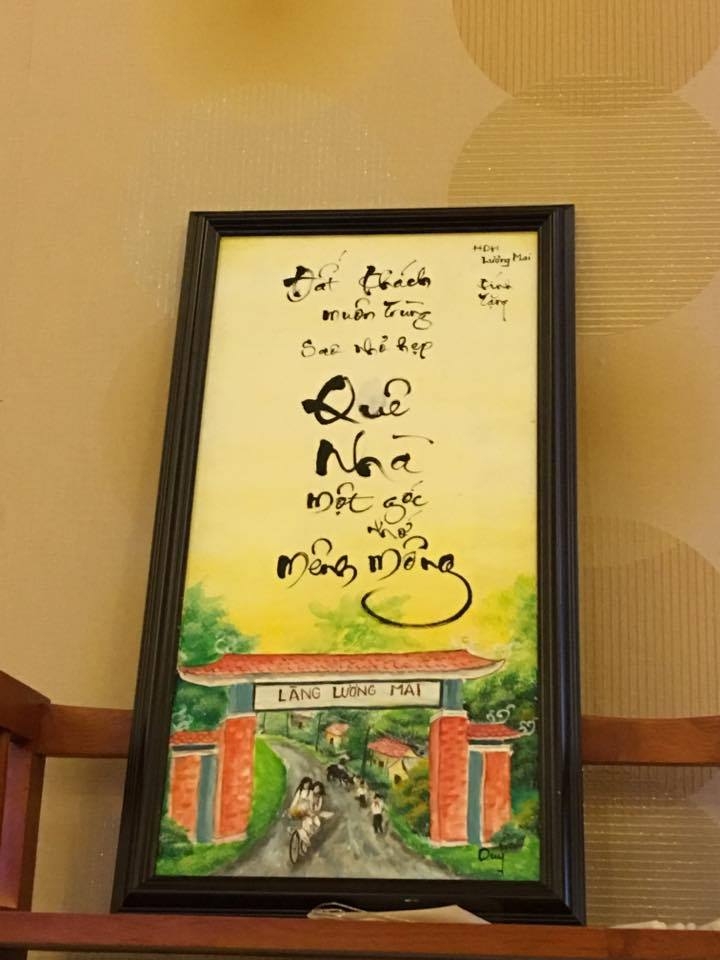 Đất khách
muôn trùng
sao nhỏ hẹp
Quê
Nhà
một góc
nhớ
mênh mông
HDH
Lương Mai
Kính
Tặng
LÀNG LƯƠNG MAI
Duy